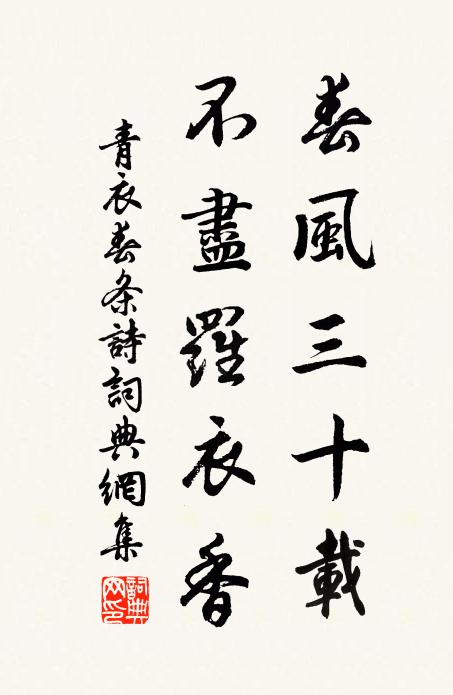 春風三十載
不盡羅衣香
青衣春条詩詞典網集
詞典網印